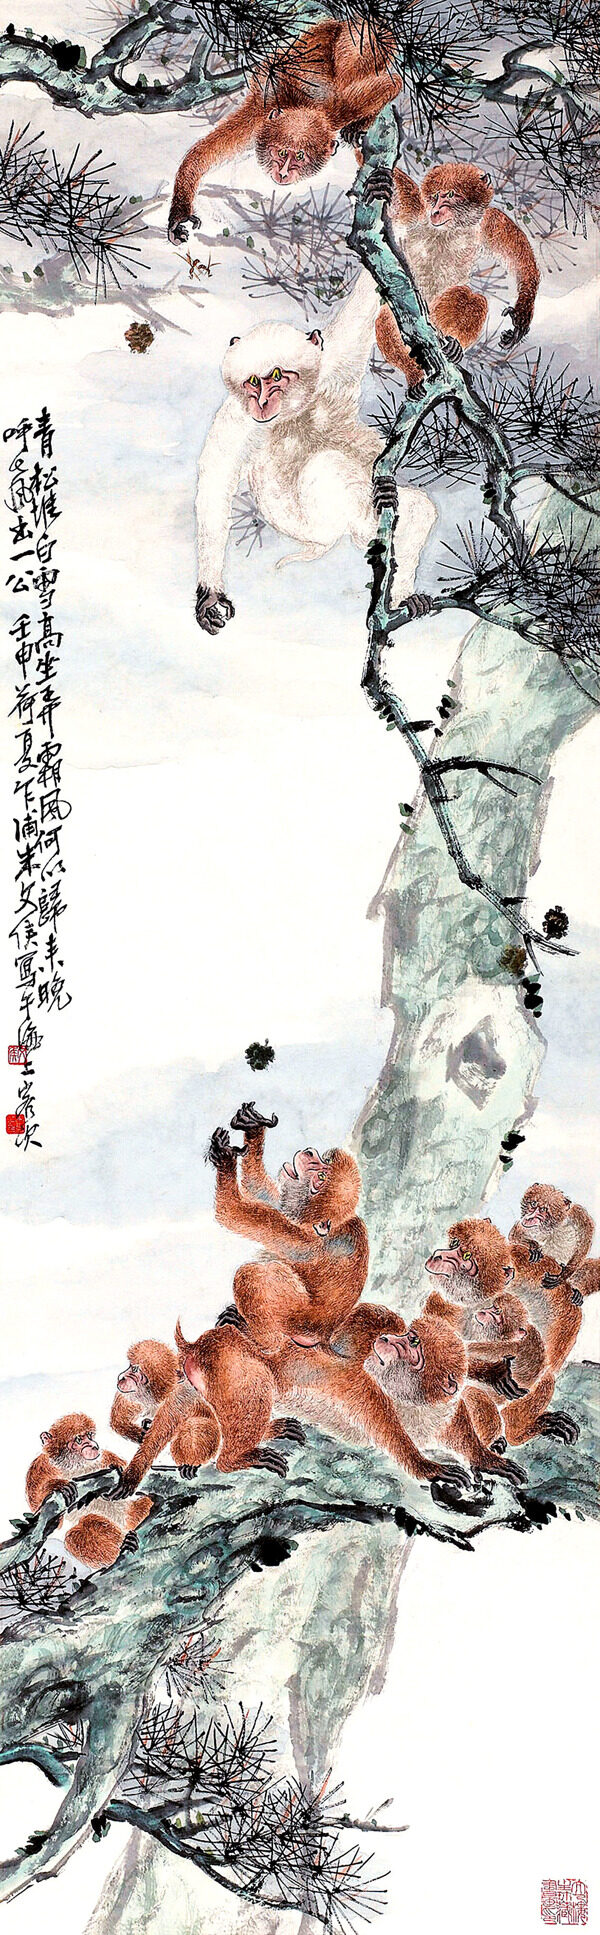 青松堆白雪高坐弄霜风何以歸来晚
呼之風出一公 壬申荷夏乍浦朱文侯写于海上客次